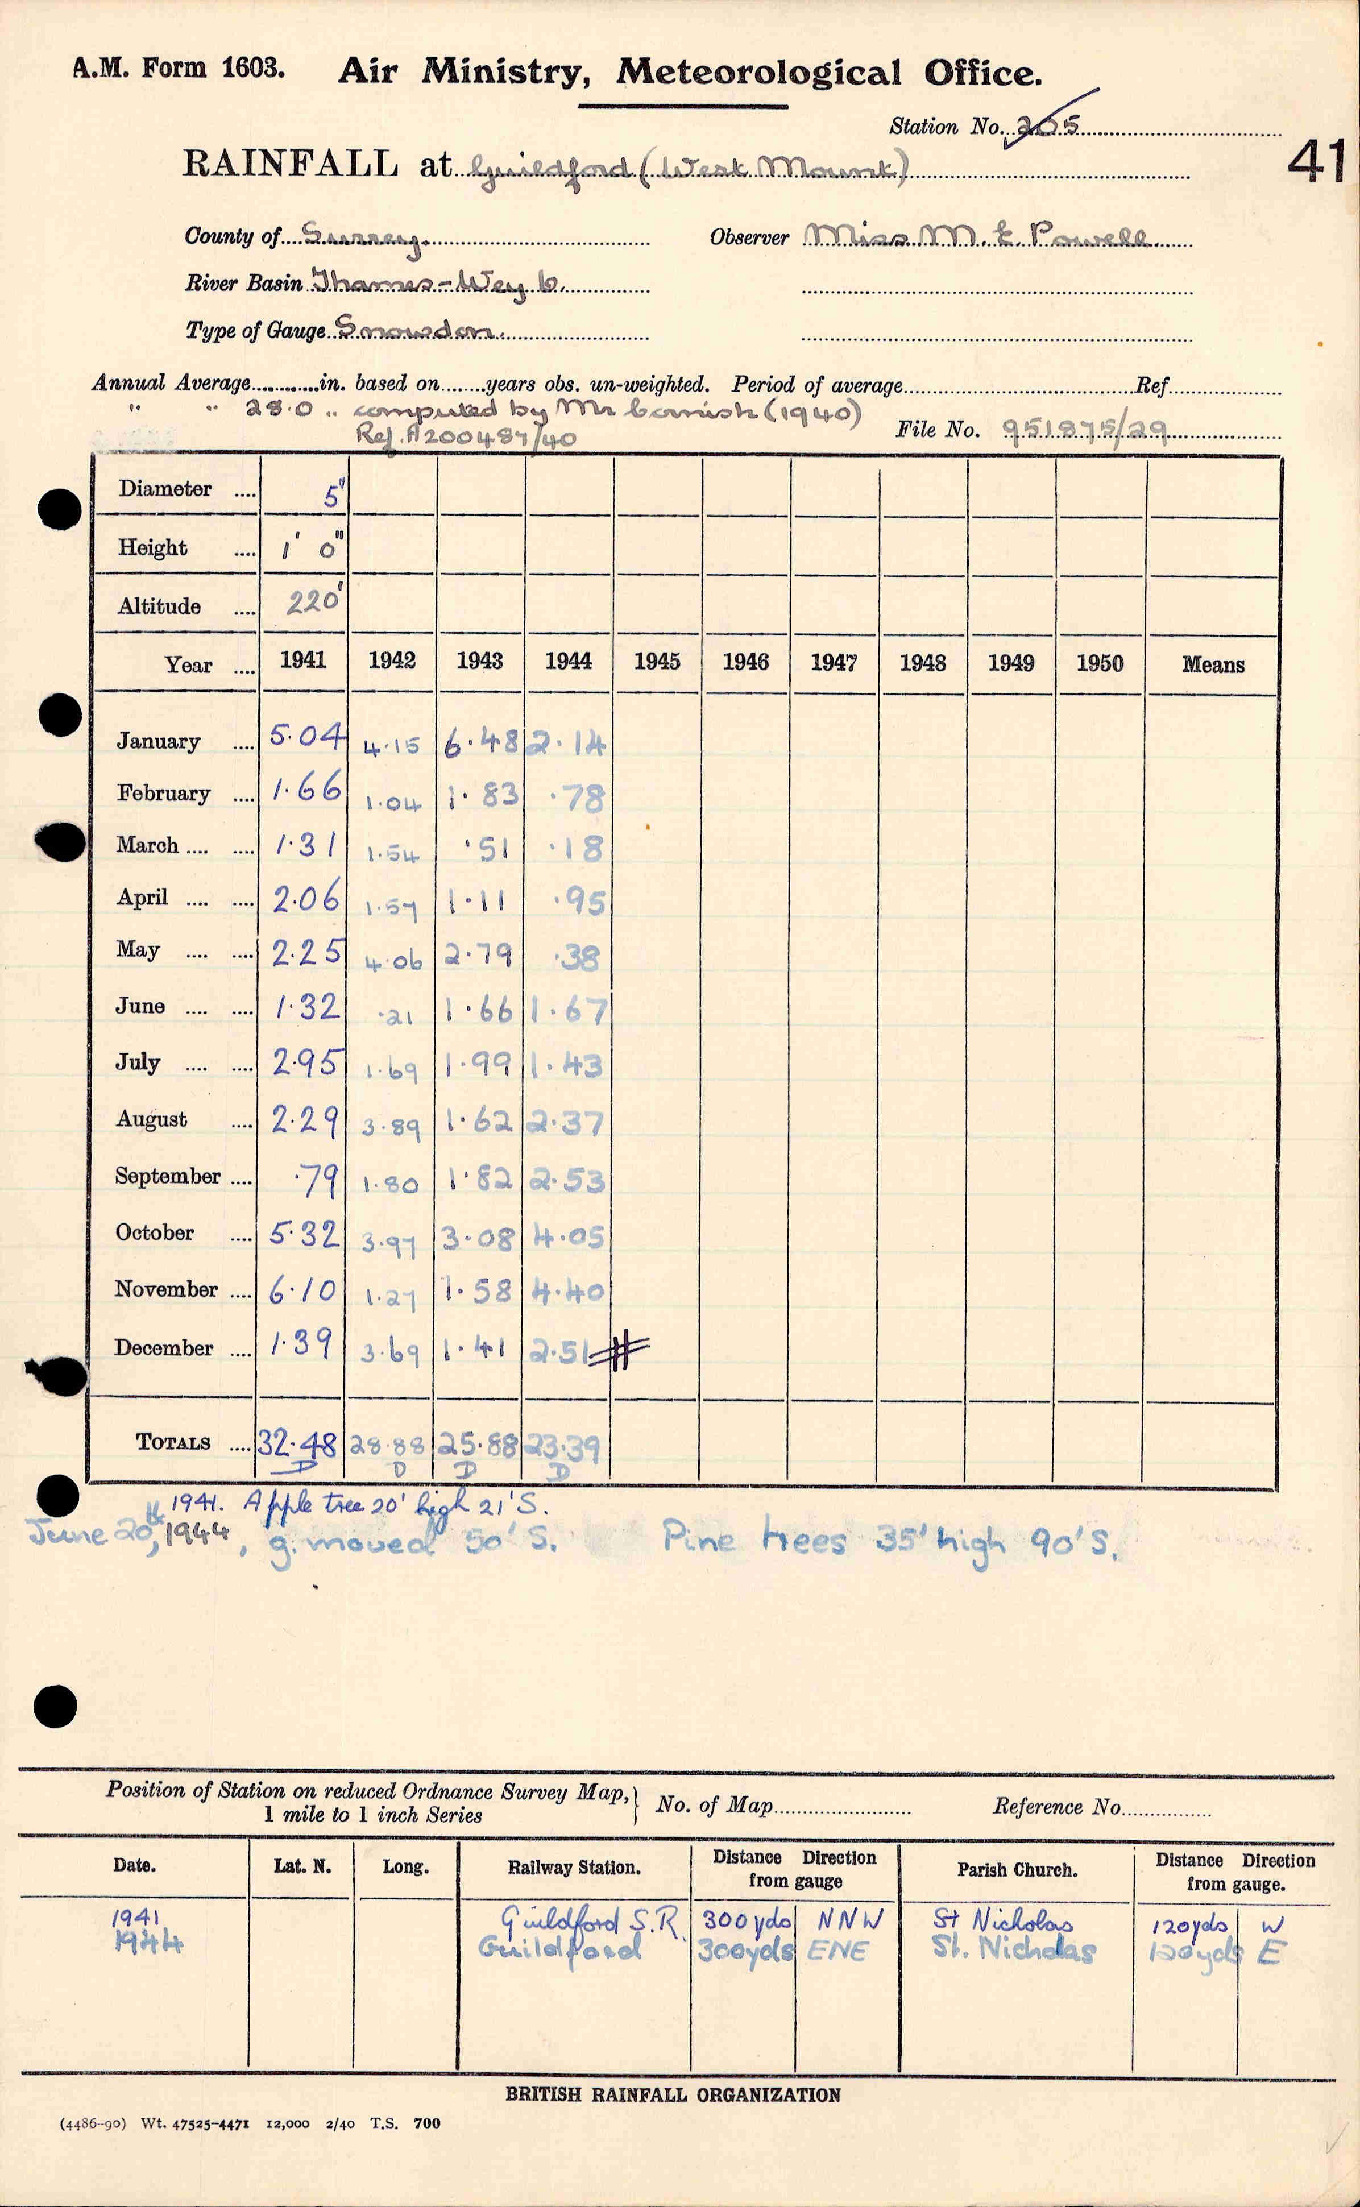 A.M. Form 1603. Air Ministry, Meteorological Office.
Station No. 205
41
RAINFALL at Guildford (West Mount)
County of Surrey. Observer Miss M. E. Powell
River Basin Thames-Wey b.
Type of Gauge Snowdon.
Annual Average............in. based on........years obs. un-weighted. Period of average................Ref...........
" " 28.0 " computed by Mr Cornish (1940)
Ref. A200487/40 File No. 951875/29
Diameter .... 5"
Height .... 1' 0"
Altitude .... 220'
Year .... 1941 1942 1943 1944 1945 1946 1947 1948 1949 1950 Means
January .... 5.04 4.15 6.48 2.14
February .... 1.66 1.04 1.83 .78
March .... .... 1.31 1.54 .51 .18
April .... .... 2.06 1.57 1.11 .95
May .... .... 2.25 4.06 2.79 .38
June .... .... 1.32 .21 1.66 1.67
July .... .... 2.95 1.69 1.99 1.43
August .... 2.29 3.89 1.62 2.37
September .... .79 1.80 1.82 2.53
October .... 5.32 3.97 3.08 4.05
November .... 6.10 1.27 1.58 4.40
December .... 1.39 3.69 1.41 2.51
TOTALS .... 32.48 28.88 25.88 23.39
D D D D
1941. Apple tree 20' high 21' S.
June 20th, 1944, g. moved 50' S. Pine trees 35' high 90' S.
Position of Station on reduced Ordnance Survey Map,} No. of Map........ Reference No........
1 mile to 1 inch Series
Date. Lat. N. Long. Railway Station. Distance Direction from gauge Parish Church. Distance Direction from gauge.
1941 Guildford S.R. 300 yds NNW St Nicholas 120 yds W
1944 Guildford 300yds ENE St. Nicholas 120yds E
BRITISH RAINFALL ORGANIZATION
(4486-90) Wt. 47525-4471 12,000 2/40 T.S. 700